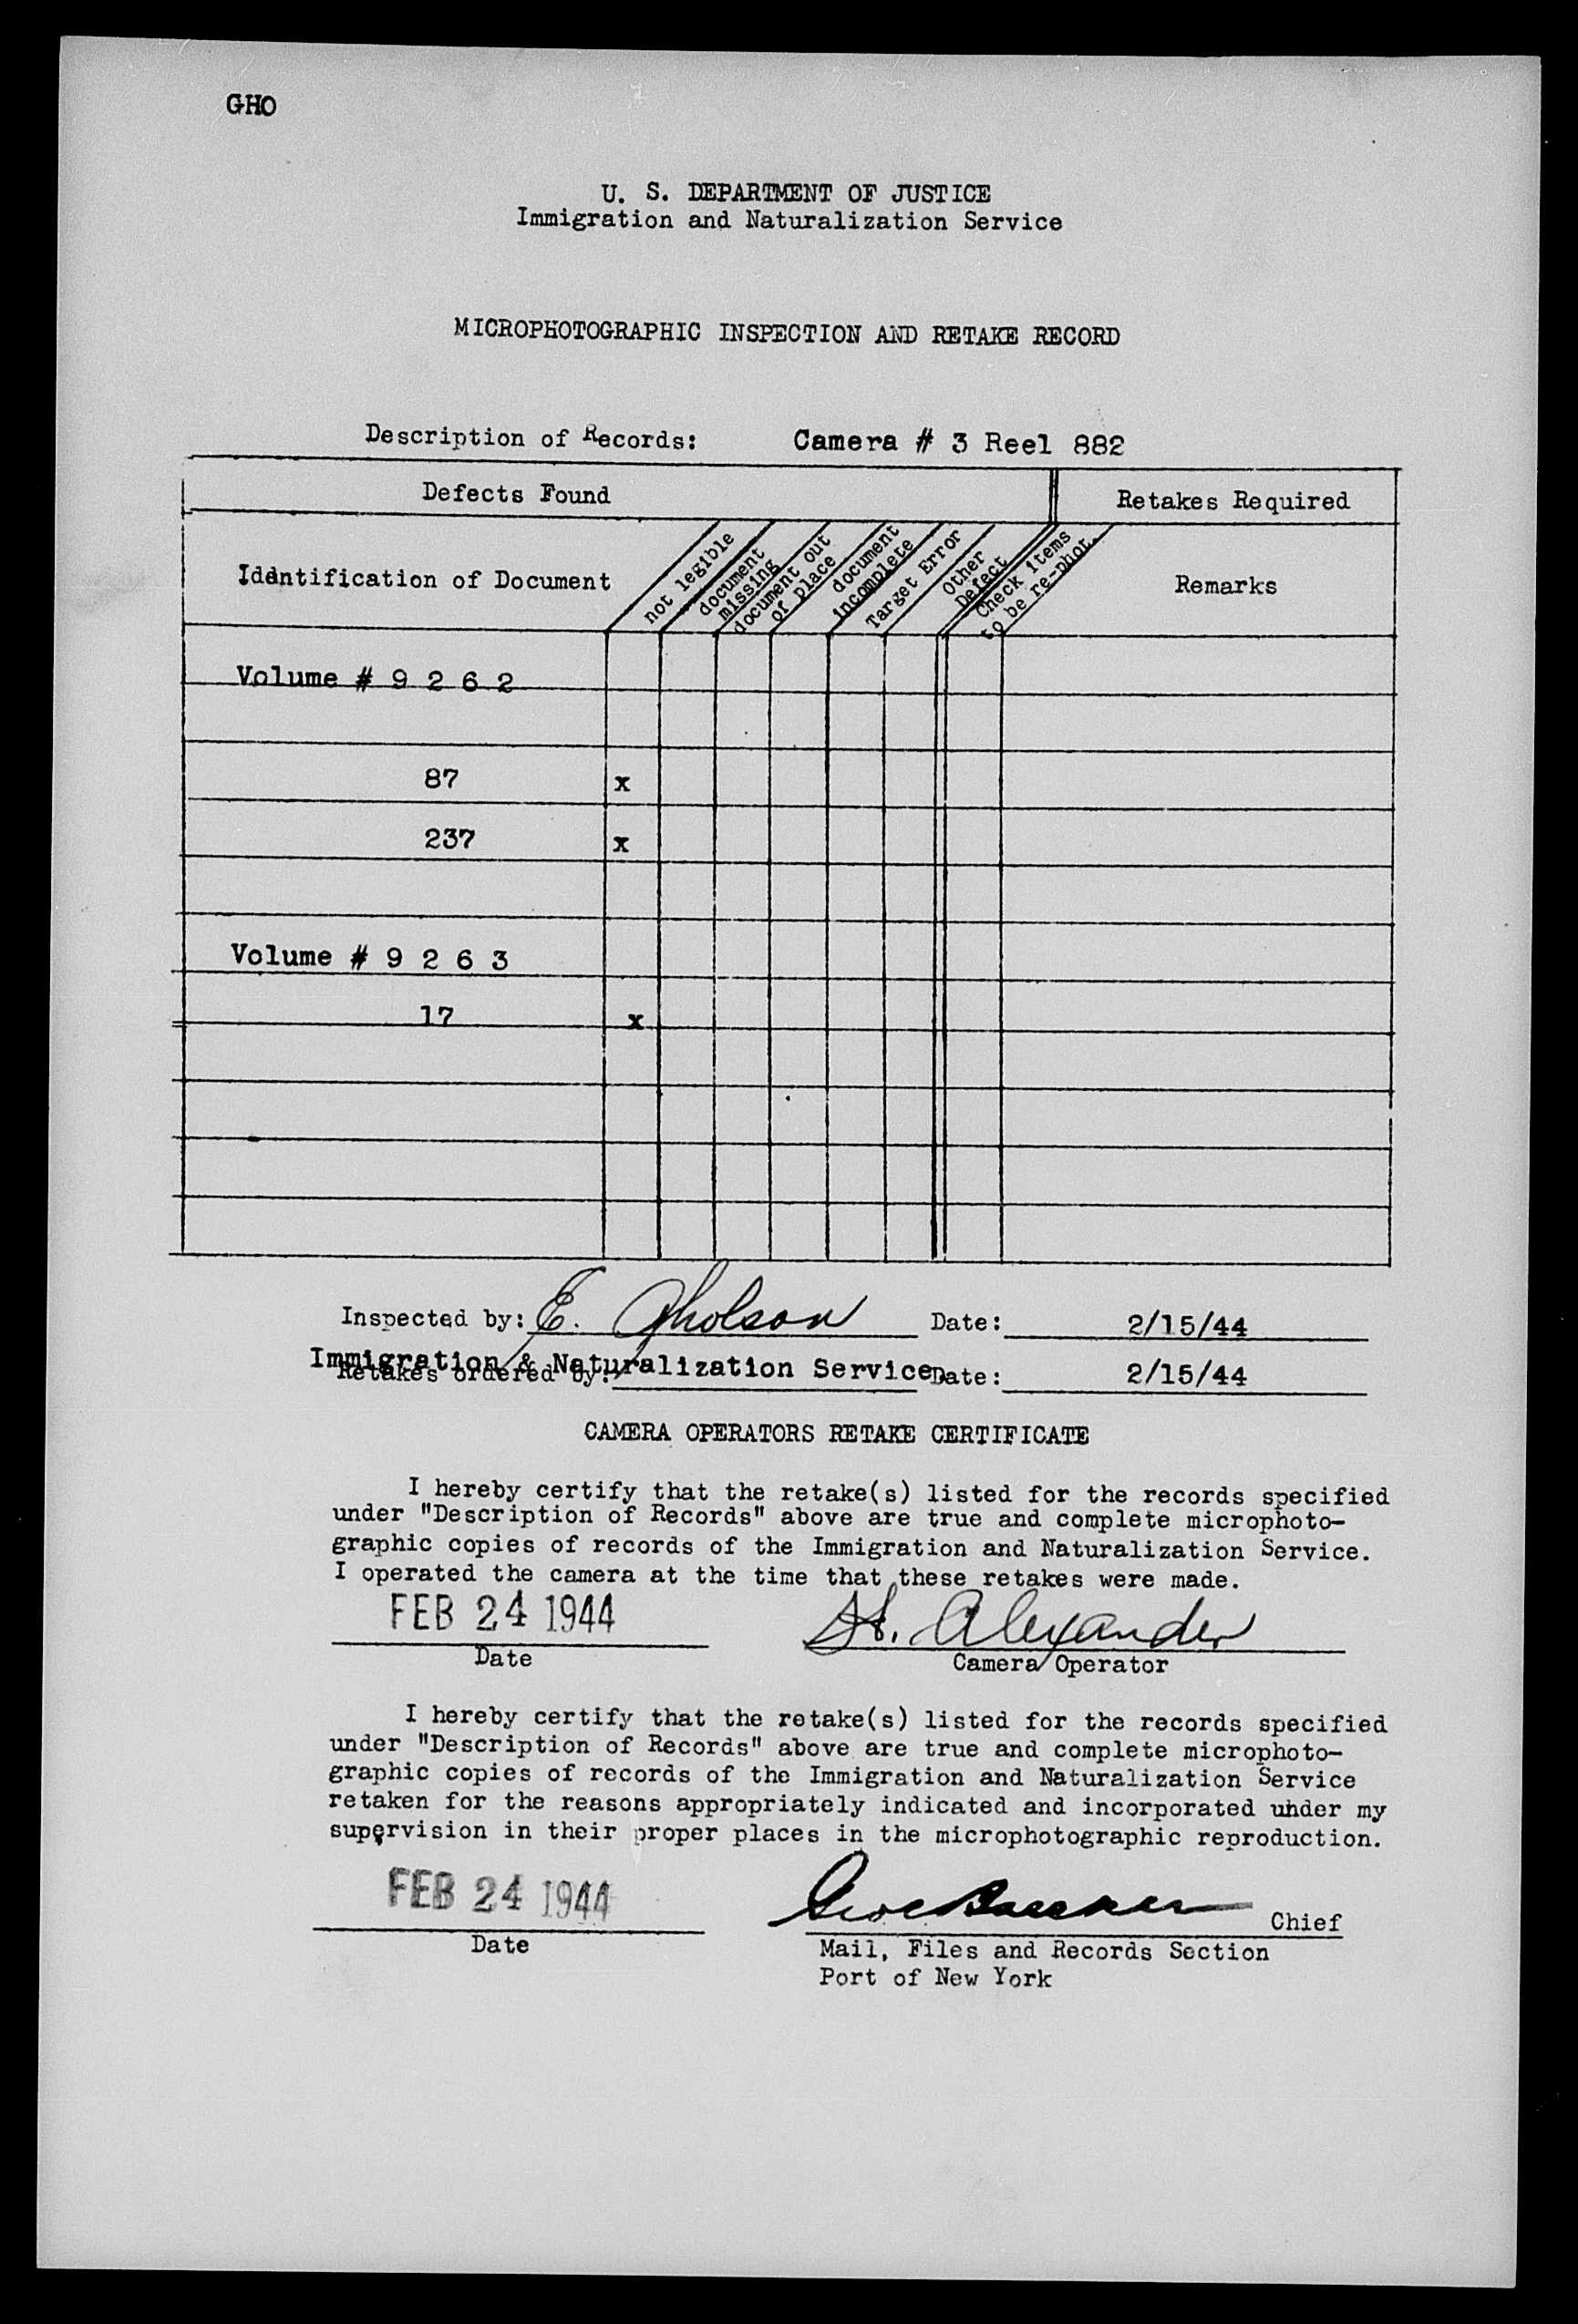 GHO
U. S. DEPARTMENT OF JUSTICE
Immigration and Naturalization Service
MICROPHOTOGRAPHIC INSPECTION AND RETAKE RECORD
Description of Records: Camera # 3 Reel 882
Defects Found Retakes Required
Identification of Document
not legible
document
missing
document out
of place
document
incomplete
Target Error
Other
Defect
Check items
to be re-phot.
Remarks
Volume # 9 2 6 2
87 x
237 x
Volume # 9 2 6 3
17 x
Inspected by: E. Gholson Date: 2/15/44
Immigration & Naturalization Service
Retakes ordered by: Date: 2/15/44
CAMERA OPERATORS RETAKE CERTIFICATE
I hereby certify that the retake(s) listed for the records specified
under "Description of Records" above are true and complete microphoto-
graphic copies of records of the Immigration and Naturalization Service.
I operated the camera at the time that these retakes were made.
FEB 24 1944 H. Alexander
Date Camera Operator
I hereby certify that the retake(s) listed for the records specified
under "Description of Records" above are true and complete microphoto-
graphic copies of records of the Immigration and Naturalization Service
retaken for the reasons appropriately indicated and incorporated under my
supervision in their proper places in the microphotographic reproduction.
FEB 24 1944 Chief
Date Mail, Files and Records Section
Port of New York